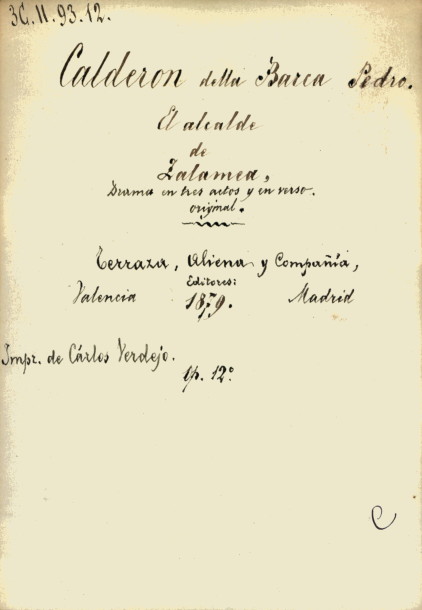 3C.II.93.12.
Calderon della Barca Pedro.
El alcalde
de
Zalamea,
Drama en tres actos y en verso.
original.
Terraza, Aliena y Compañía,
Editores:
Valencia 1879. Madrid
Impr. de Cárlos Verdejo.
12°
C